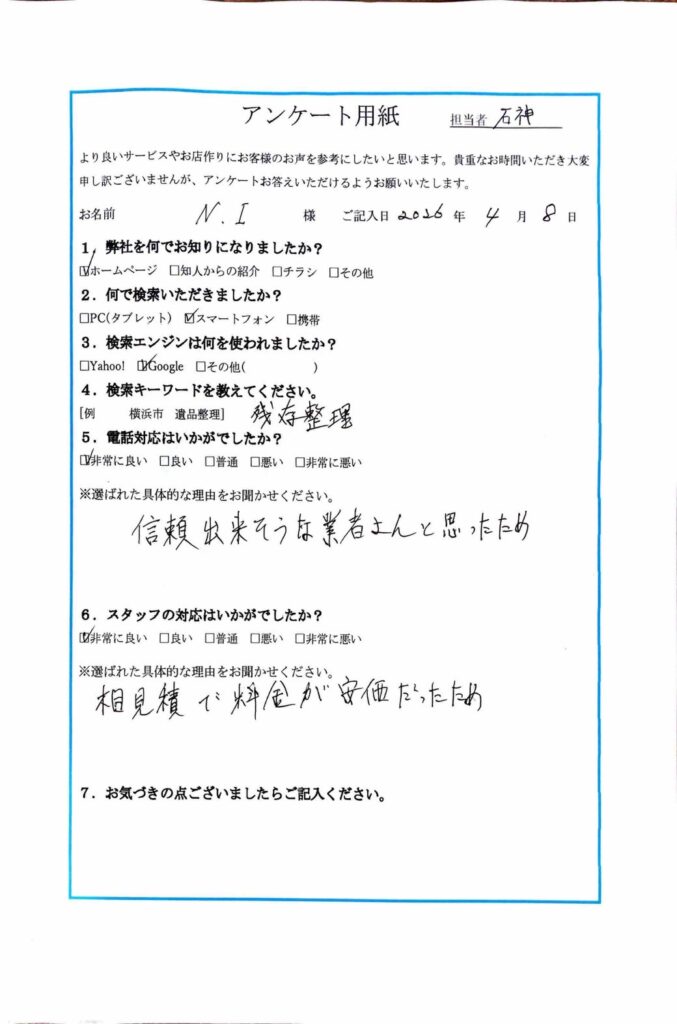 アンケート用紙 担当者 石神
より良いサービスやお店作りにお客様のお声を参考にしたいと思います。貴重なお時間いただき大変
申し訳ございませんが、アンケートお答えいただけるようお願いいたします。
お名前 N.I 様 ご記入日 2026 年 4 月 8 日
1．弊社を何でお知りになりましたか？
☑ホームページ □知人からの紹介 □チラシ □その他
2．何で検索いただきましたか？
□PC(タブレット) ☑スマートフォン □携帯
3．検索エンジンは何を使われましたか？
□Yahoo! ☑Google □その他( )
4．検索キーワードを教えてください。
[例 横浜市 遺品整理] 残存整理
5．電話対応はいかがでしたか？
☑非常に良い □良い □普通 □悪い □非常に悪い
※選ばれた具体的な理由をお聞かせください。
信頼出来そうな業者さんと思ったため
6．スタッフの対応はいかがでしたか？
☑非常に良い □良い □普通 □悪い □非常に悪い
※選ばれた具体的な理由をお聞かせください。
相見積で料金が安価だったため
7．お気づきの点ございましたらご記入ください。